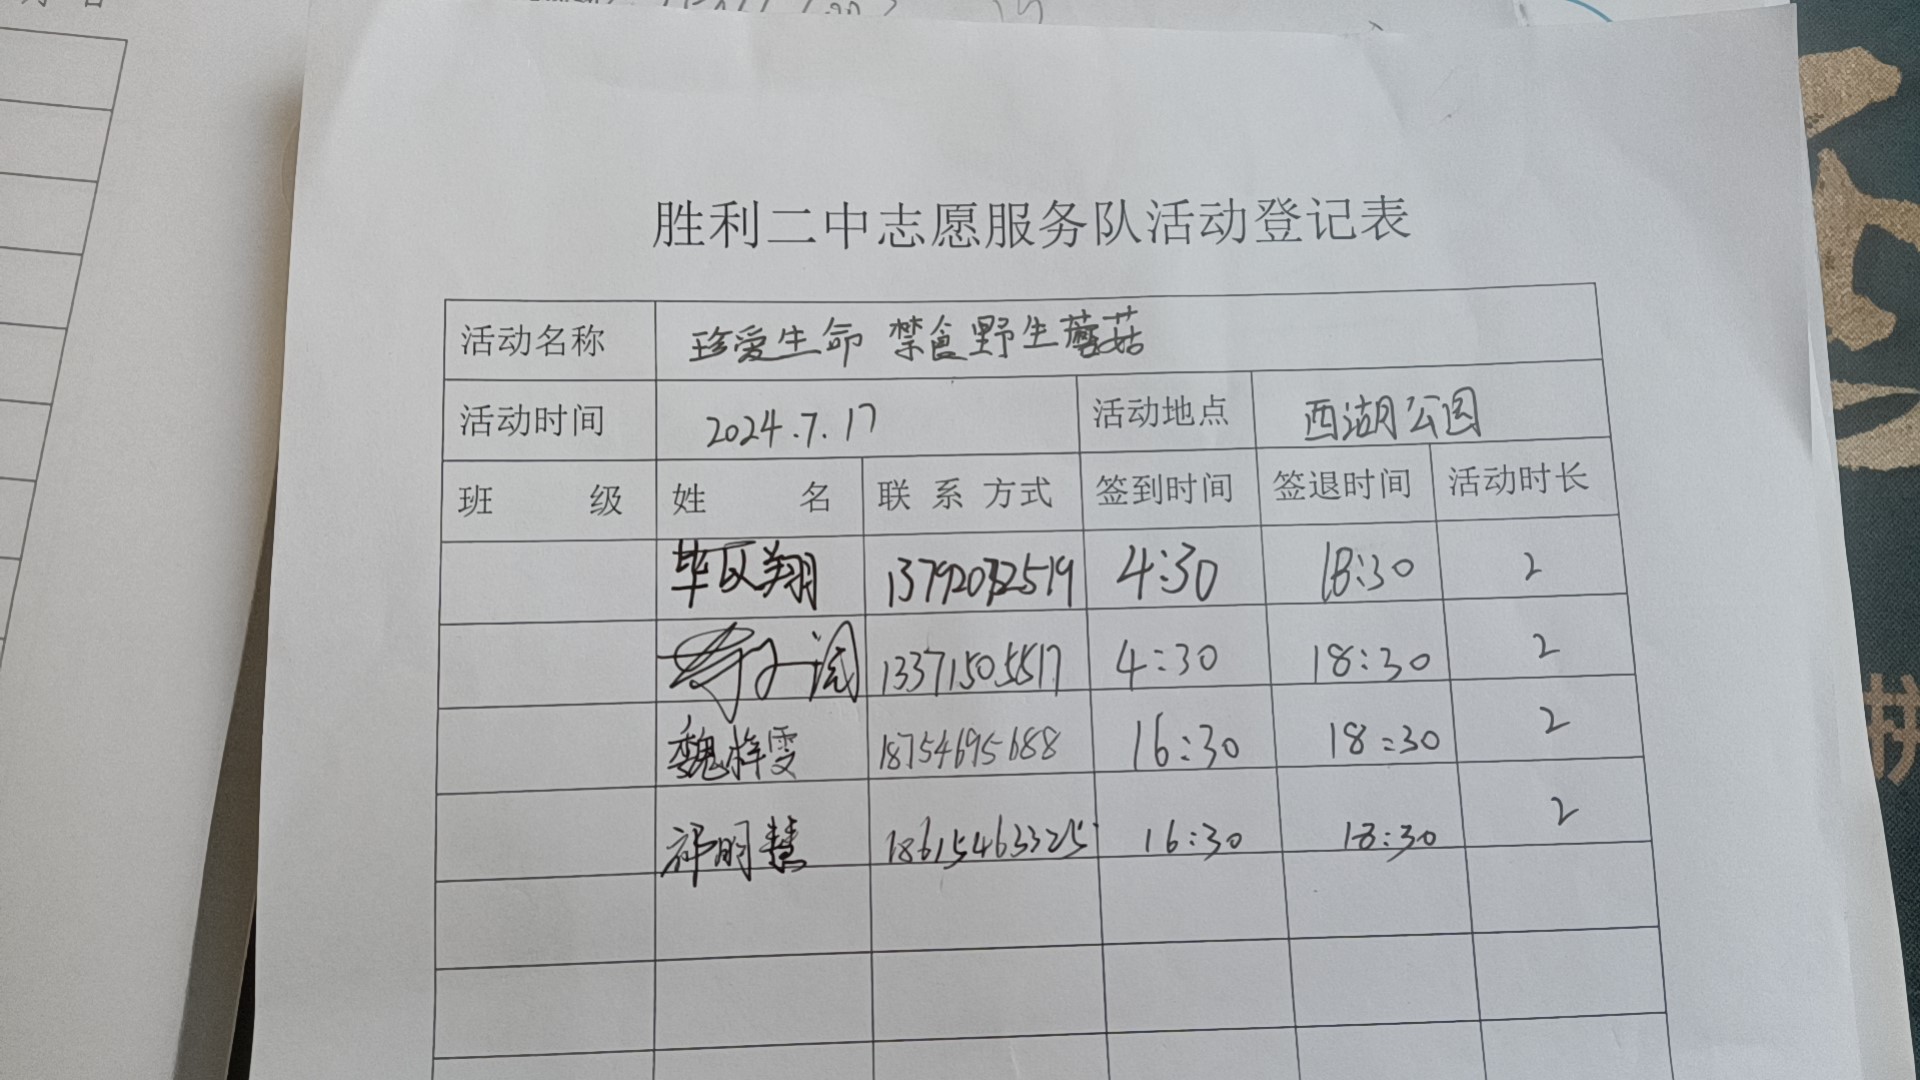 胜利二中志愿服务队活动登记表
活动名称 珍爱生命 禁食野生蘑菇
活动时间 2024.7.17 活动地点 西湖公园
班 级 姓 名 联 系 方式 签到时间 签退时间 活动时长
毕 翔 4:30 18:30 2
13371505517 4:30 18:30 2
魏梓雯 18754695688 16:30 18:30 2
祁明慧 18615463325 16:30 18:30 2
拼